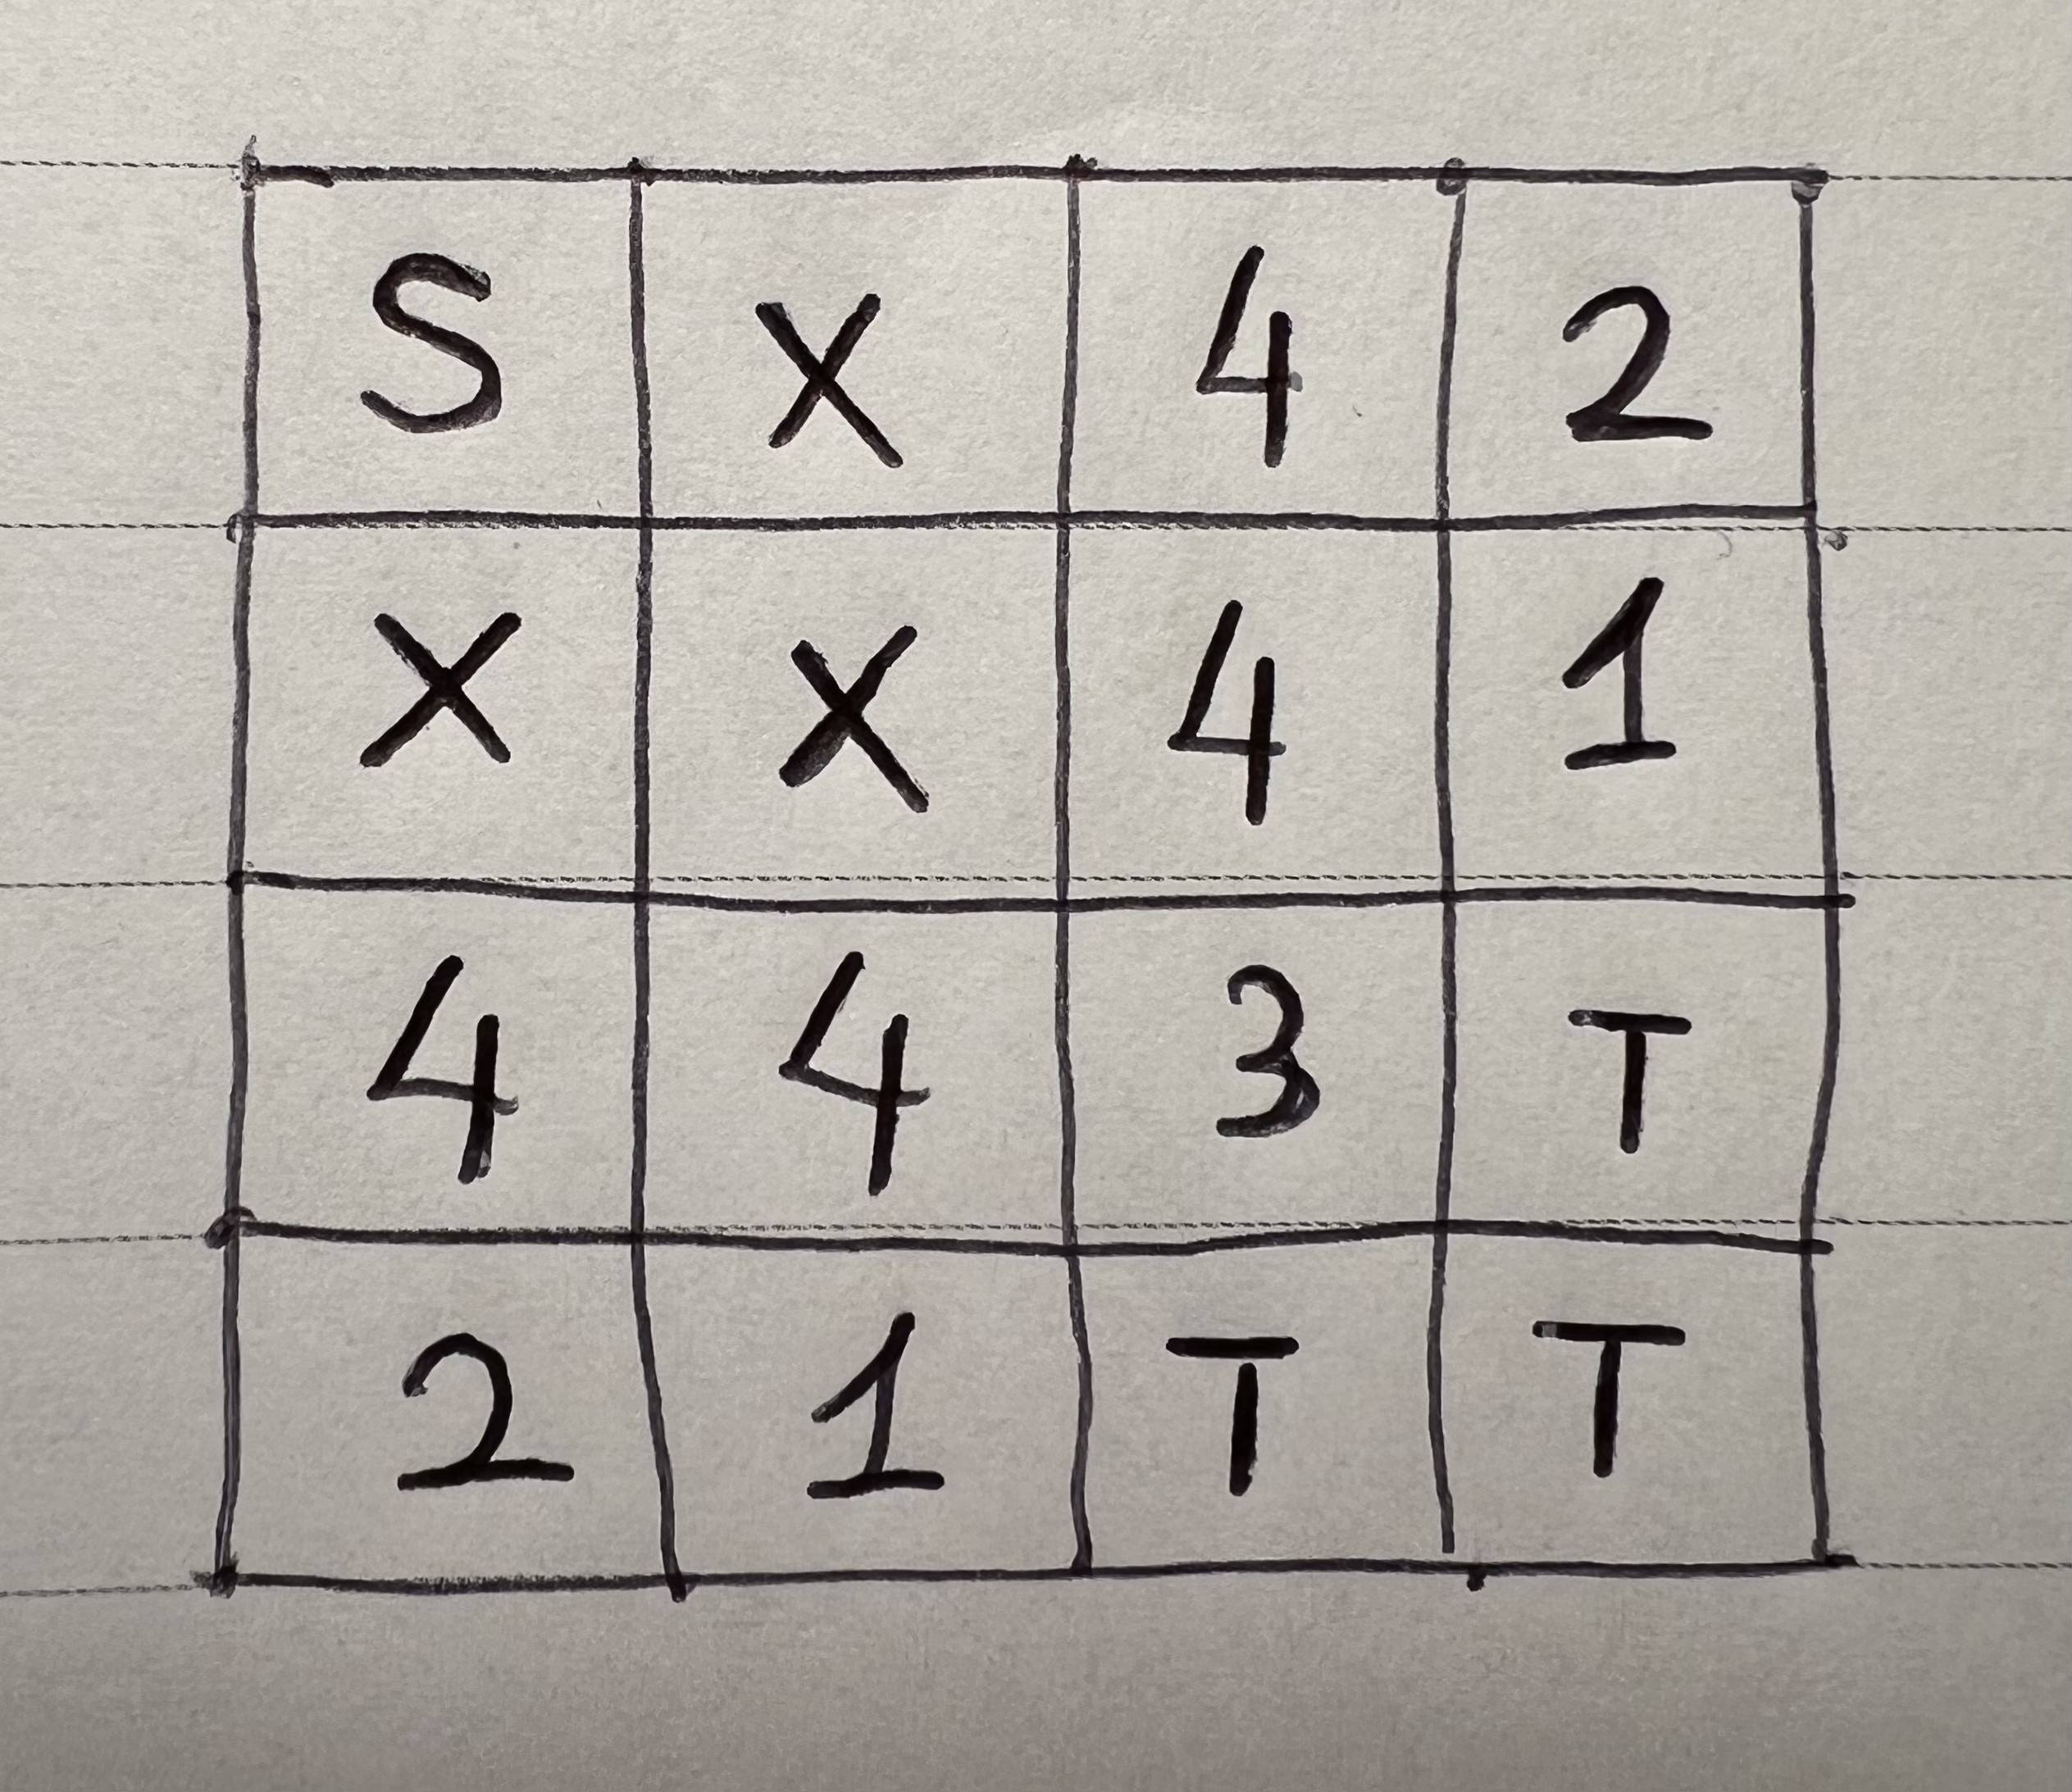 S X 4 2
X X 4 1
4 4 3 T
2 1 T T